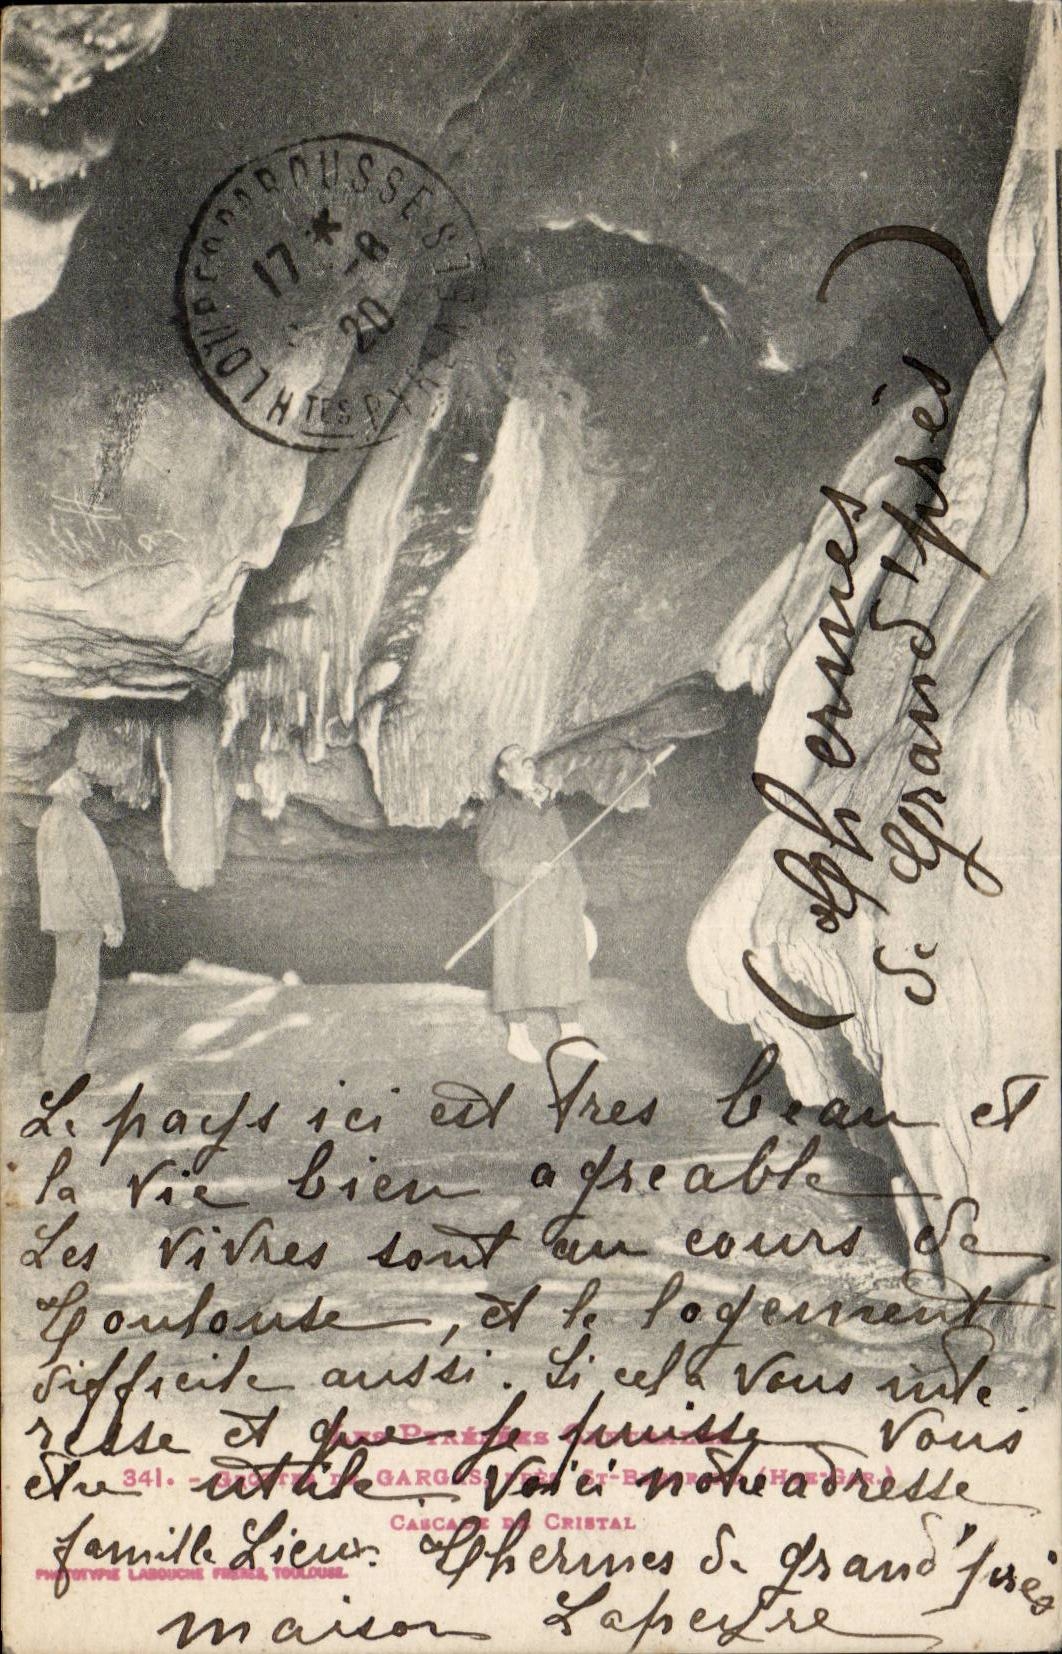 17 * -8
20
HTES PYRENEES
(Thermes
de Grand'prés)
Le pays ici est tres beau et
la vie bien agreable
Les vivres sont au cours de
Toulouse, et le logement
difficile aussi. Si cela vous inte
resse et que je puisse vous
être utile. Voici notre adresse
famille Lieux. Thermes de grand'prés
maison Lapeyre
LES PYRÉNÉES CENTRALES
341. - GROTTES DE GARGAS, PRÈS ST-BERTRAND (HTE-GAR.)
CASCADE DE CRISTAL
PHOTOTYPIE LABOUCHE FRÈRES, TOULOUSE.